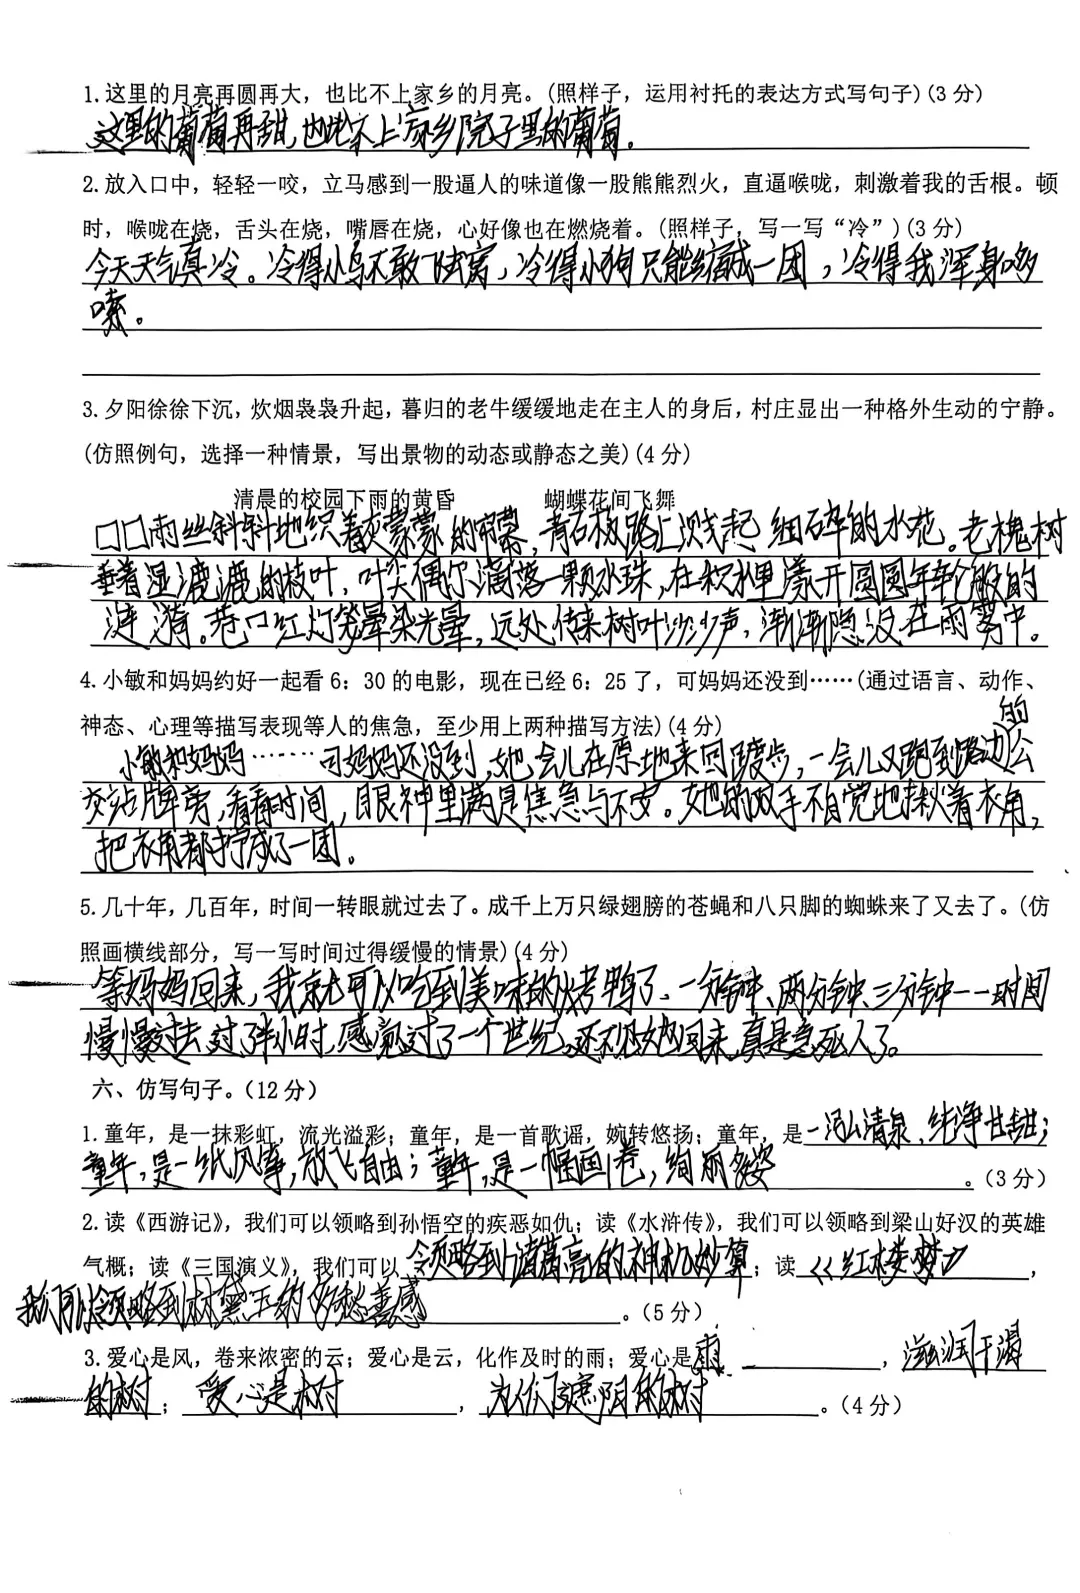 1.这里的月亮再圆再大，也比不上家乡的月亮。(照样子，运用衬托的表达方式写句子)(3分)
这里的葡萄再甜，也比不上家乡院子里的葡萄。
2.放入口中，轻轻一咬，立马感到一股逼人的味道像一股熊熊烈火，直逼喉咙，刺激着我的舌根。顿
时，喉咙在烧，舌头在烧，嘴唇在烧，心好像也在燃烧着。(照样子，写一写“冷”)(3分)
今天天气真冷。冷得小鸟不敢飞出窝，冷得小狗只能缩成一团，冷得我浑身哆
嗦。
3.夕阳徐徐下沉，炊烟袅袅升起，暮归的老牛缓缓地走在主人的身后，村庄显出一种格外生动的宁静。
(仿照例句，选择一种情景，写出景物的动态或静态之美)(4分)
清晨的校园下雨的黄昏 蝴蝶花间飞舞
口口雨丝斜斜地织着灰蒙蒙的帘幕，青石板路上溅起细碎的水花。老槐树
垂着湿漉漉的枝叶，叶尖偶尔滴落一颗水珠，在积水里漾开圆圆年轮般的
涟漪。巷口红灯笼晕染光晕，远处传来树叶沙沙声，渐渐隐没在雨雾中。
4.小敏和妈妈约好一起看6：30的电影，现在已经6：25了，可妈妈还没到……(通过语言、动作、
神态、心理等描写表现等人的焦急，至少用上两种描写方法)(4分)
的
小敏和妈妈……可妈妈还没到，她一会儿在原地来回踱步，一会儿又跑到路边公
交站牌旁，看看时间，眼神里满是焦急与不安。她的双手不自觉地揪着衣角，
把衣角都拧成了一团。
5.几十年，几百年，时间一转眼就过去了。成千上万只绿翅膀的苍蝇和八只脚的蜘蛛来了又去了。(仿
照画横线部分，写一写时间过得缓慢的情景)(4分)
等妈妈回来，我就可以吃到美味的烤鸭了、一分钟、两分钟、三分钟——时间
慢慢过去，过了半小时，感觉过了一个世纪。还不见她回来，真是急死人了。
六、仿写句子。(12分)
1.童年，是一抹彩虹，流光溢彩；童年，是一首歌谣，婉转悠扬；童年，是一泓清泉，纯净甘甜；
童年，是一纸风筝，放飞自由；童年，是一幅画卷，绚丽多姿。(3分)
2.读《西游记》，我们可以领略到孙悟空的疾恶如仇；读《水浒传》，我们可以领略到梁山好汉的英雄
气概；读《三国演义》，我们可以领略到诸葛亮的神机妙算；读《红楼梦》，
我们可以领略到林黛玉的多愁善感。(5分)
3.爱心是风，卷来浓密的云；爱心是云，化作及时的雨；爱心是雨，滋润干渴
的树；爱心是树，为人们遮阴的树。(4分)